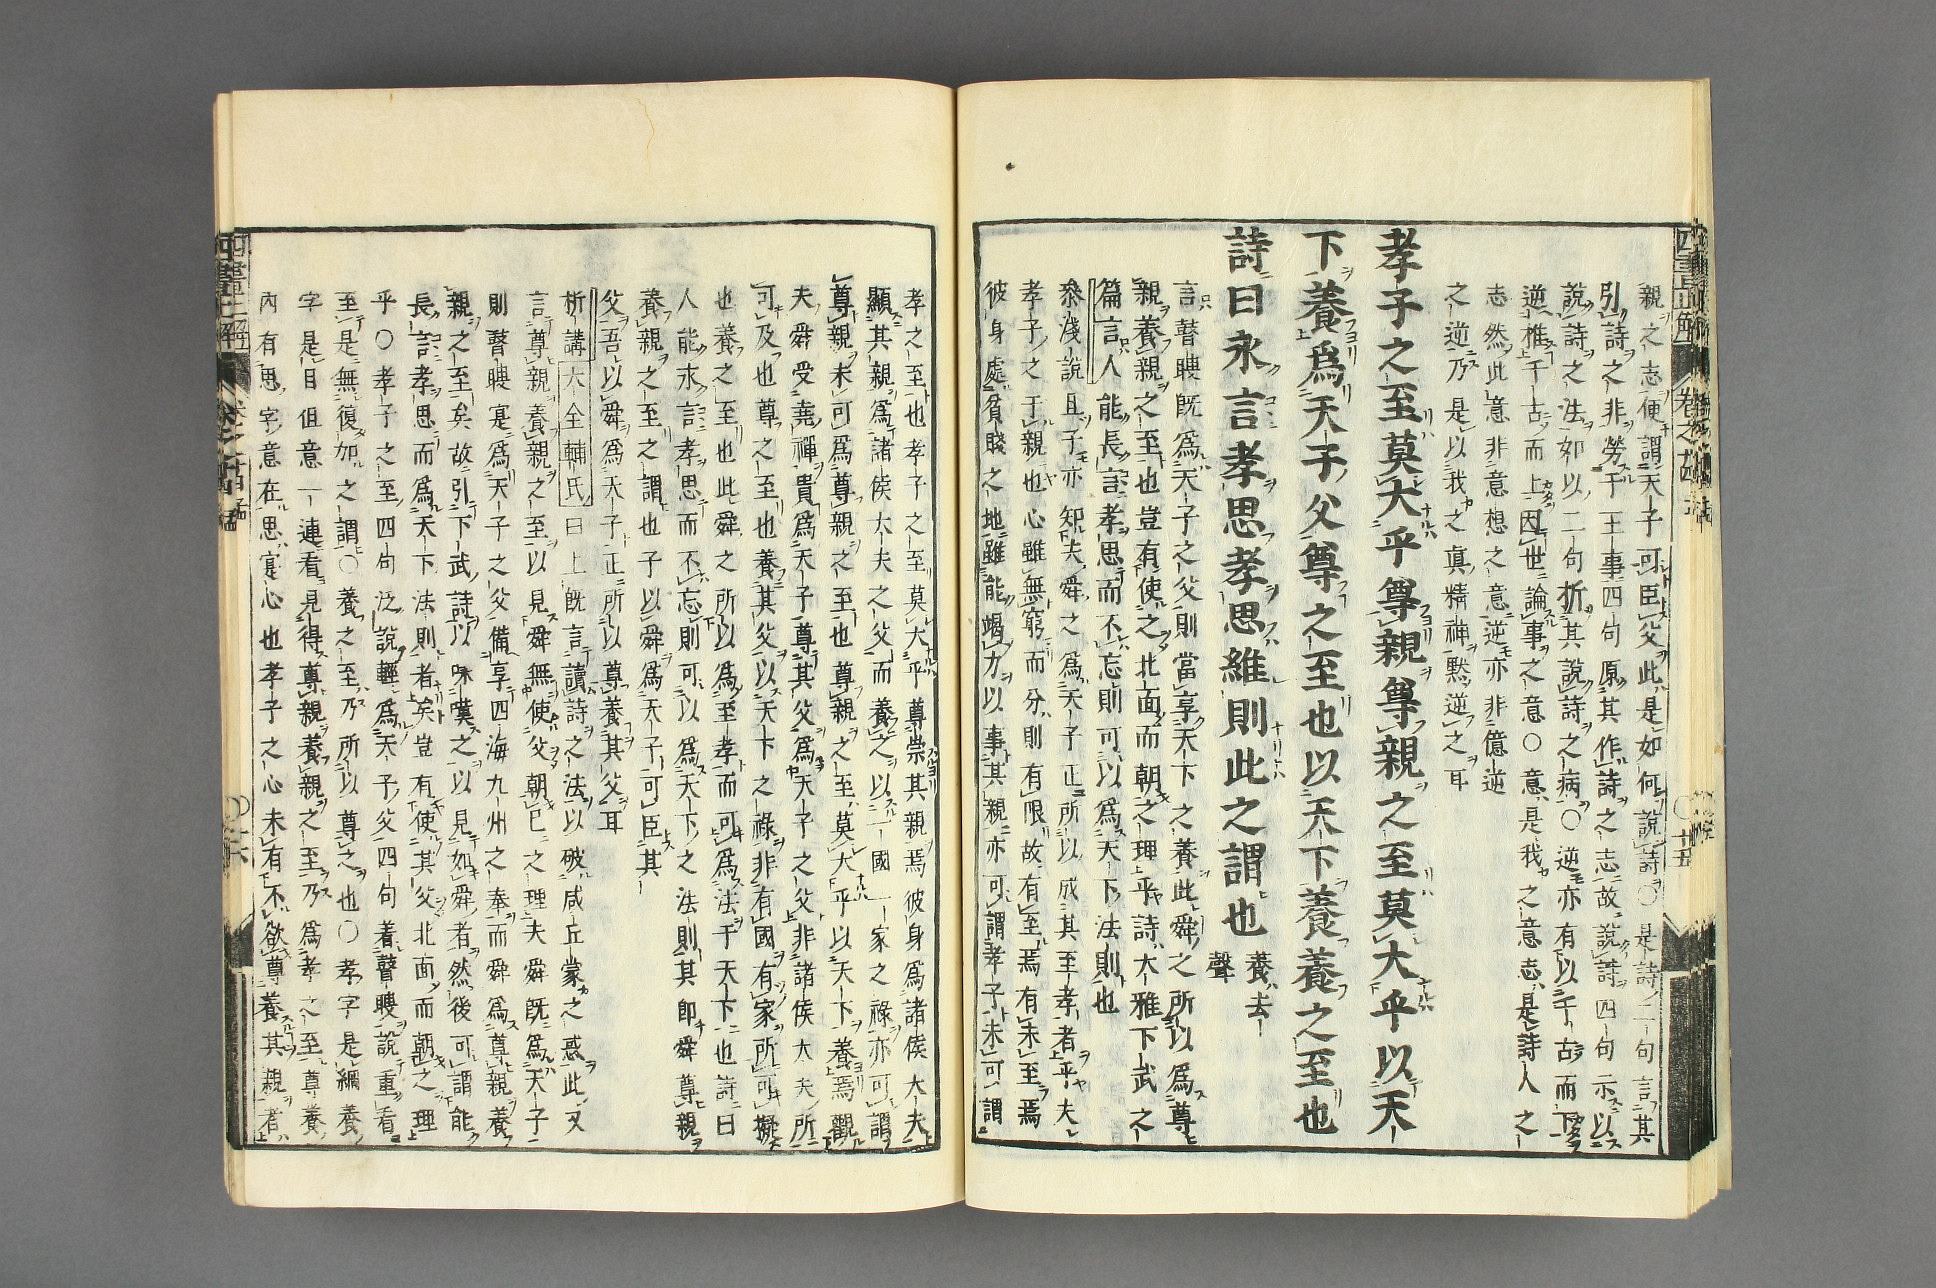 親之志便謂天子可臣父此是如何說詩○是詩二句言其
引詩之非勞于王事四句原其作詩之志故說詩四句示以
說詩之法如以二句折其說詩之病○逆亦有以千古而下
逆推千古而上因世論事之意○意是我之意志是詩人之
志然此意非意想之意逆亦非億逆
之逆乃是以我之真精神默逆之耳
孝子之至莫大乎尊親尊親之至莫大乎以天
下養爲天子父尊之至也以天下養養之至也
詩曰永言孝思孝思維則此之謂也
養去
聲
言瞽瞍既爲天子之父則當享天下之養此舜之所以爲尊
親養親之至也豈有使之北面而朝之理乎詩大雅下武之
篇言人能長言孝思而不忘則可以爲天下法則也
淺說且子亦知夫舜之爲天子正所以成其至孝者乎夫
孝子之于親也心雖無窮而分則有限故有至焉有未至焉
彼身處貧賤之地雖能竭力以事其親亦可謂孝子未可謂
孝之至也孝子之至莫大乎尊崇其親焉彼身爲諸侯大夫
顯其親爲諸侯大夫之父而養之以一國一家之祿亦可謂
尊親未可爲尊親之至也尊親之至莫大乎以天下養焉觀
夫舜受堯禪貴爲天子尊其父爲天子之父非諸侯大夫所
可及也尊之至也養其父以天下之祿非有國有家所可擬
也養之至也此舜之所以爲至孝而可爲法于天下也詩曰
人能永言孝思而不忘則可以爲天下之法則其即舜尊親
養親之至之謂也子以舜爲天子可臣其
父吾以舜爲天子正所以尊養其父耳
析講大全輔氏曰上既言讀詩之法以破咸丘蒙之惑此又
言尊親養親之至以見舜無使父朝已之理夫舜既爲天子
則瞽瞍寔爲天子之父備享四海九州之奉而舜爲尊親養
親之至矣故引下武詩以咏嘆之以見如舜者然後可謂能
長言孝思而爲天下法則者矣豈有使其父北面而朝之理
乎○孝子之至四句泛說輕爲天子父四句着瞽瞍說重看
至是無復加之謂○養之至乃所以尊之也○孝字是綱養
字是目但意一連看見得尊親養親之至乃爲孝之至尊養
內有思字意在思寔心也孝子之心未有不欲尊養其親者